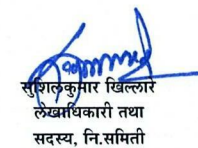 सुशिलकुमार खिल्लारे
लेखाधिकारी तथा
सदस्य, नि.समिती